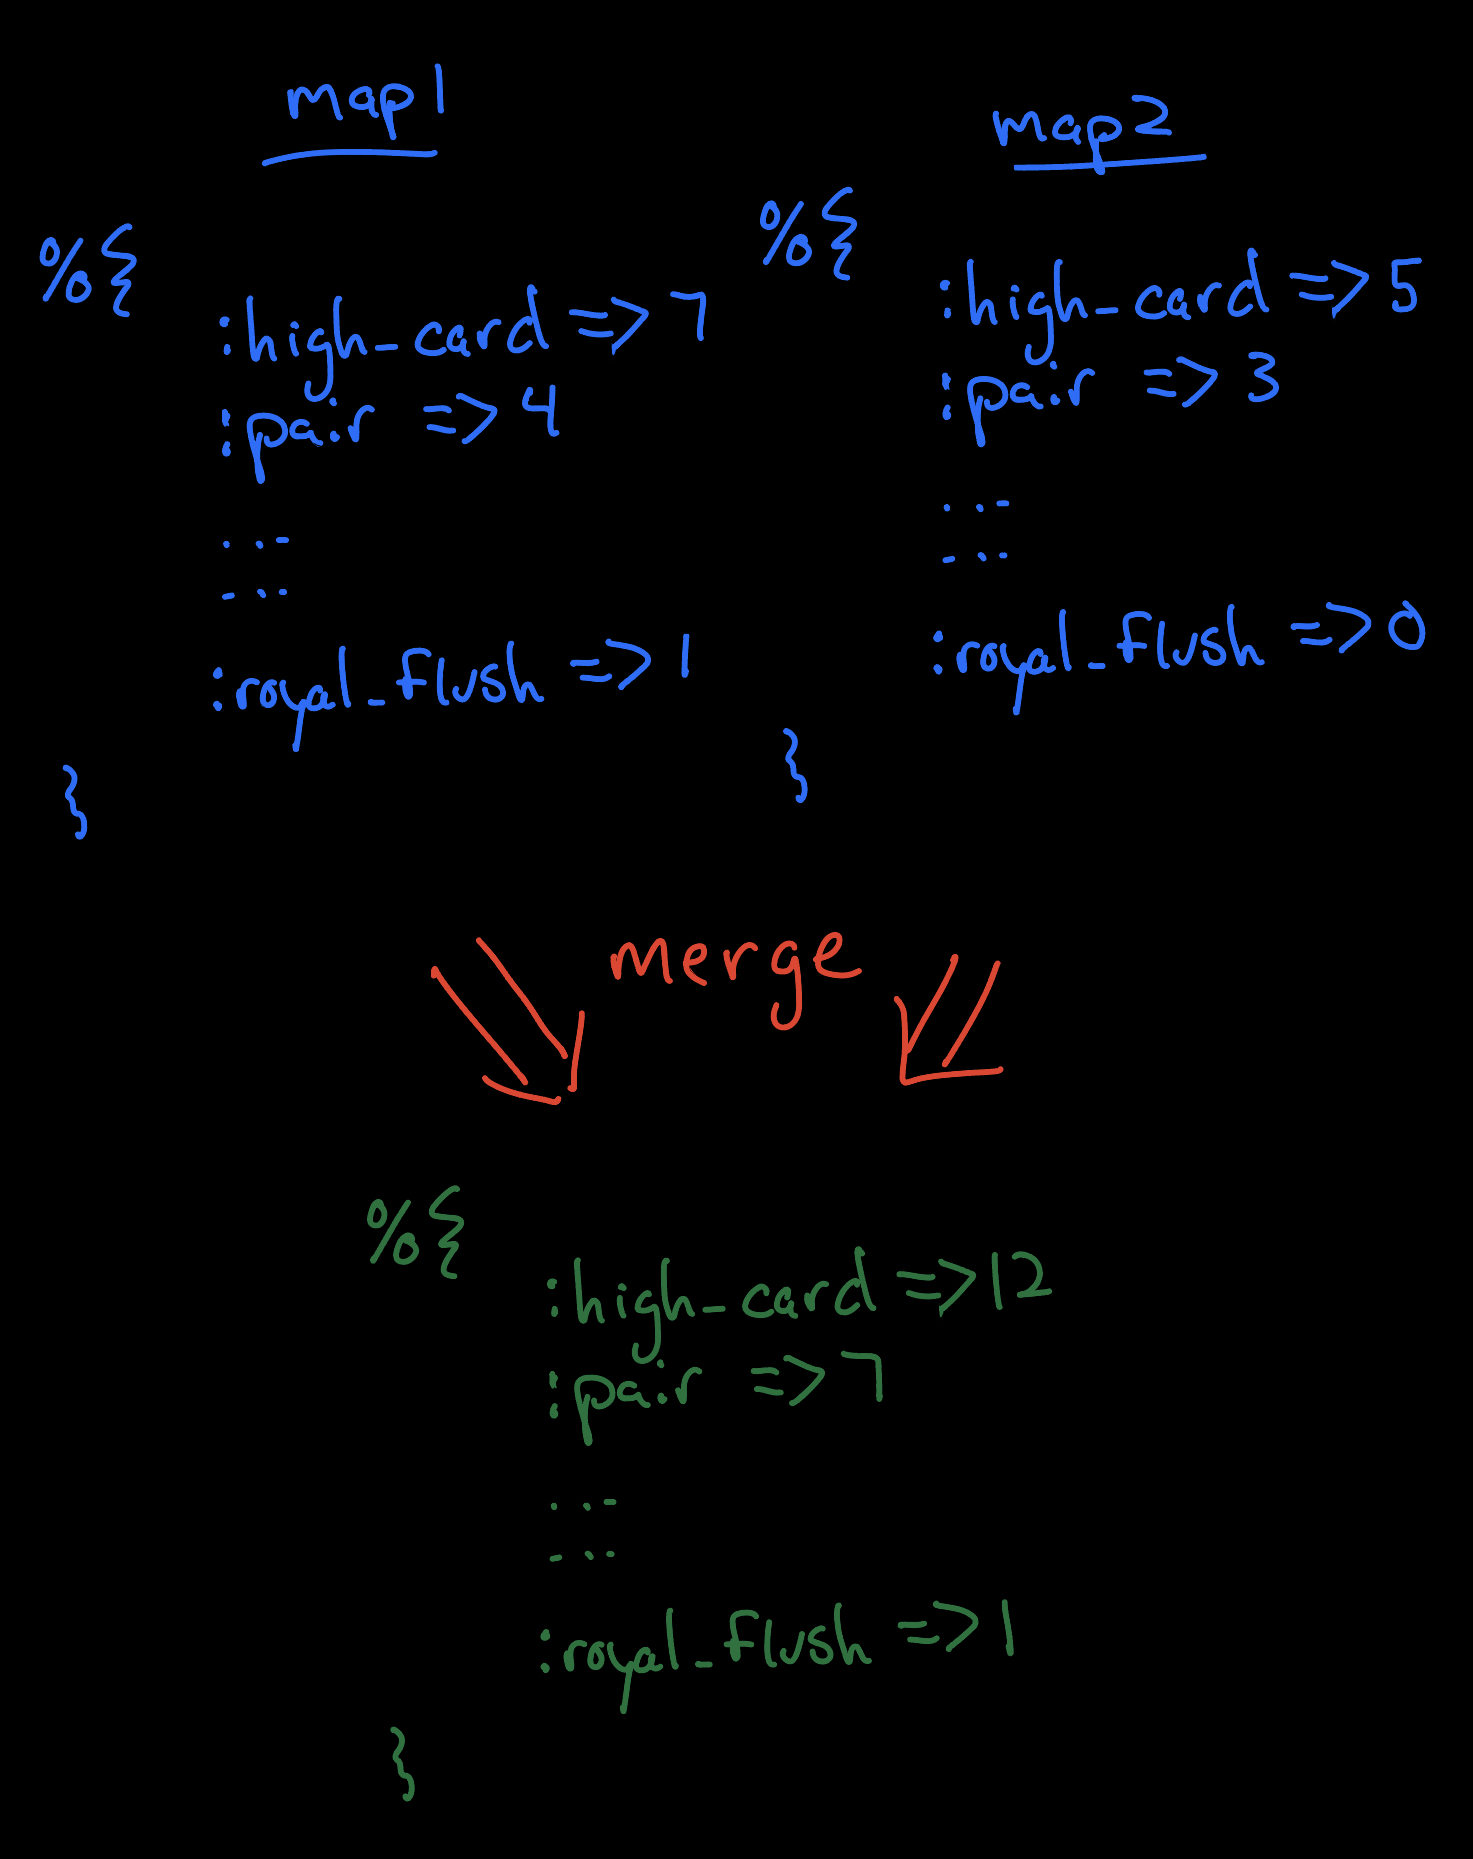 map1
%{
:high_card => 7
:pair => 4
...
...
:royal_flush => 1
}
map2
%{
:high_card => 5
:pair => 3
...
...
:royal_flush => 0
}
merge
%{
:high_card => 12
:pair => 7
...
...
:royal_flush => 1
}